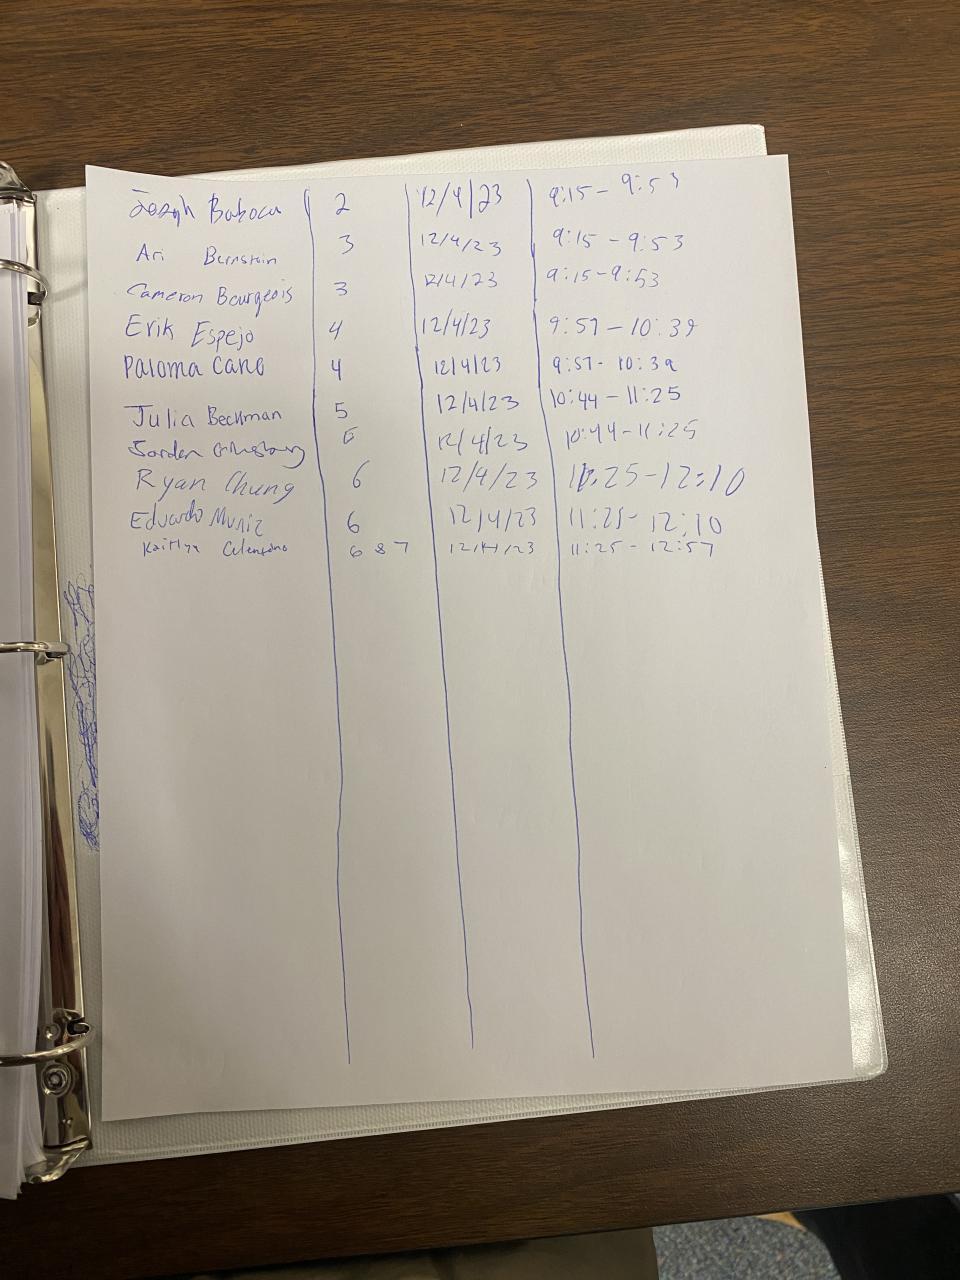 Joseph 2 12/4/23 9:15 - 9:53
Ari Bernstein 3 12/4/23 9:15 - 9:53
Cameron Bourgeois 3 12/4/23 9:15-9:53
Erik Espejo 4 12/4/23 9:57 - 10:39
Paloma Cano 4 12/4/23 9:57 - 10:39
Julia Beckman 5 12/4/23 10:44 - 11:25
Jordan 12/4/23 10:44-11:25
Ryan Chung 6 12/4/23 11:25-12:10
Eduardo Muniz 6 12/4/23 11:25- 12:10
Kaitlyn 6 & 7 12/4/23 11:25 - 12:57